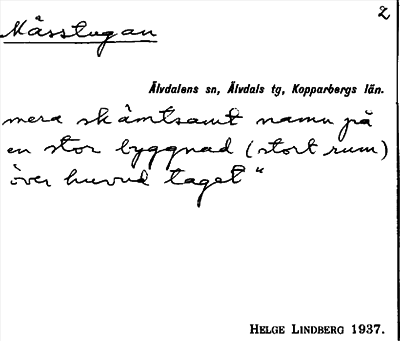 2
Mässtugan
Älvdalens sn, Älvdals tg, Kopparbergs län.
mera skämtsamt namn på
en stor byggnad (stort rum)
över huvud taget"
HELGE LINDBERG 1937.